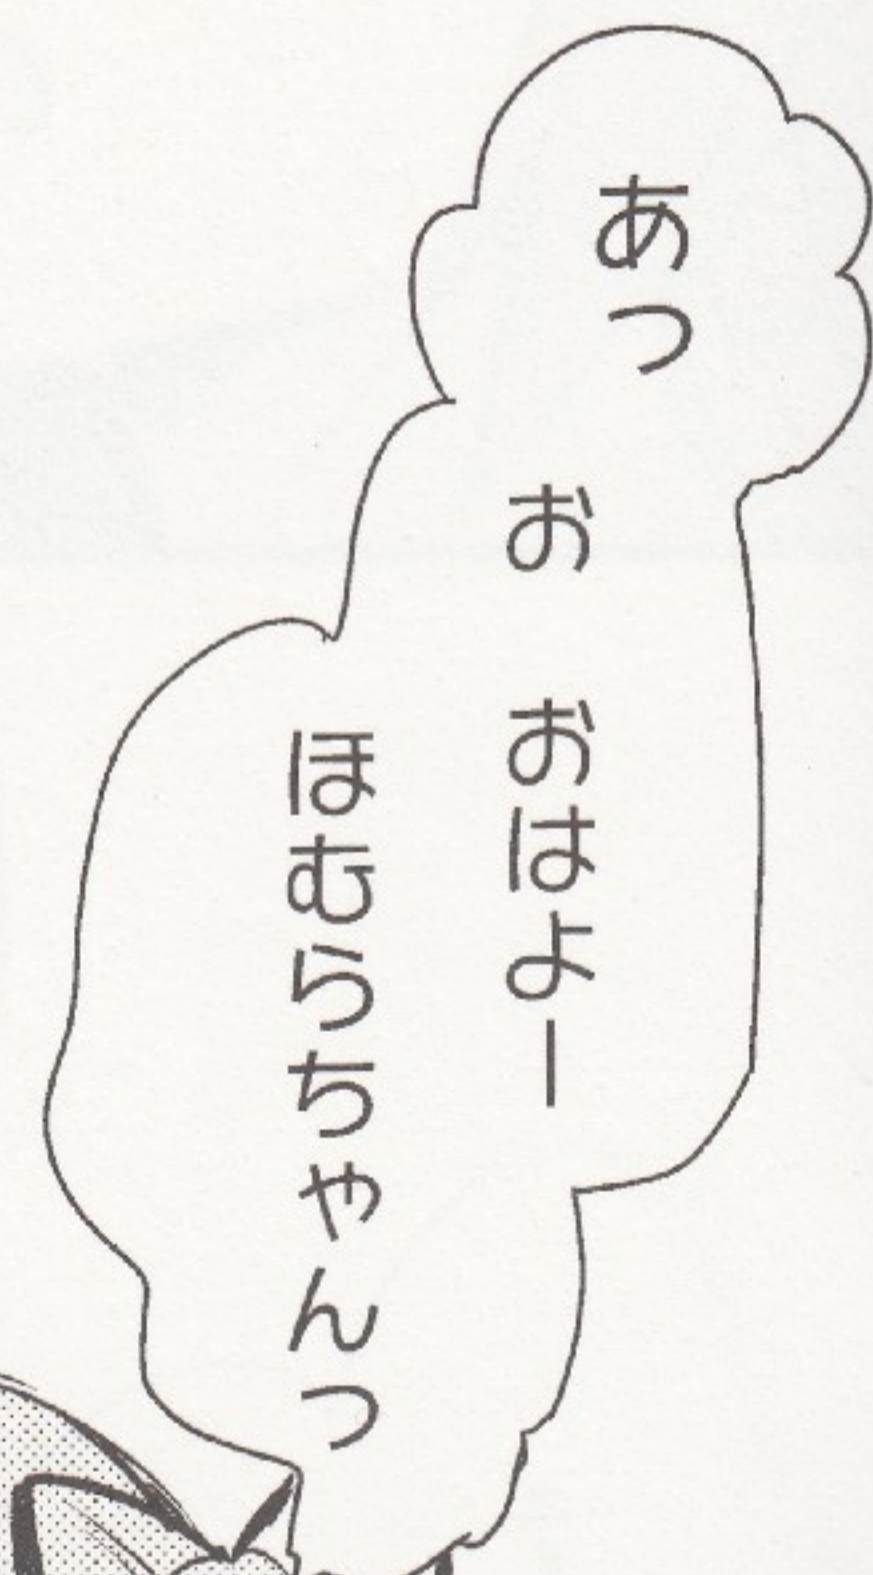 あっ
お　おはよー
ほむらちゃんっ